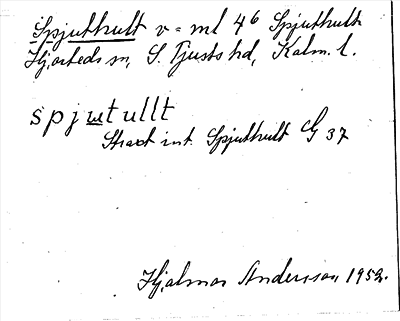 Spjuthult v = ml 4⁶ Spjuthult
Hjorteds sn, S. Tjusts hd, Kalm. l.
spjutullt
Strax int. Spjuthult G 37
Hjalmar Andersson 1952.